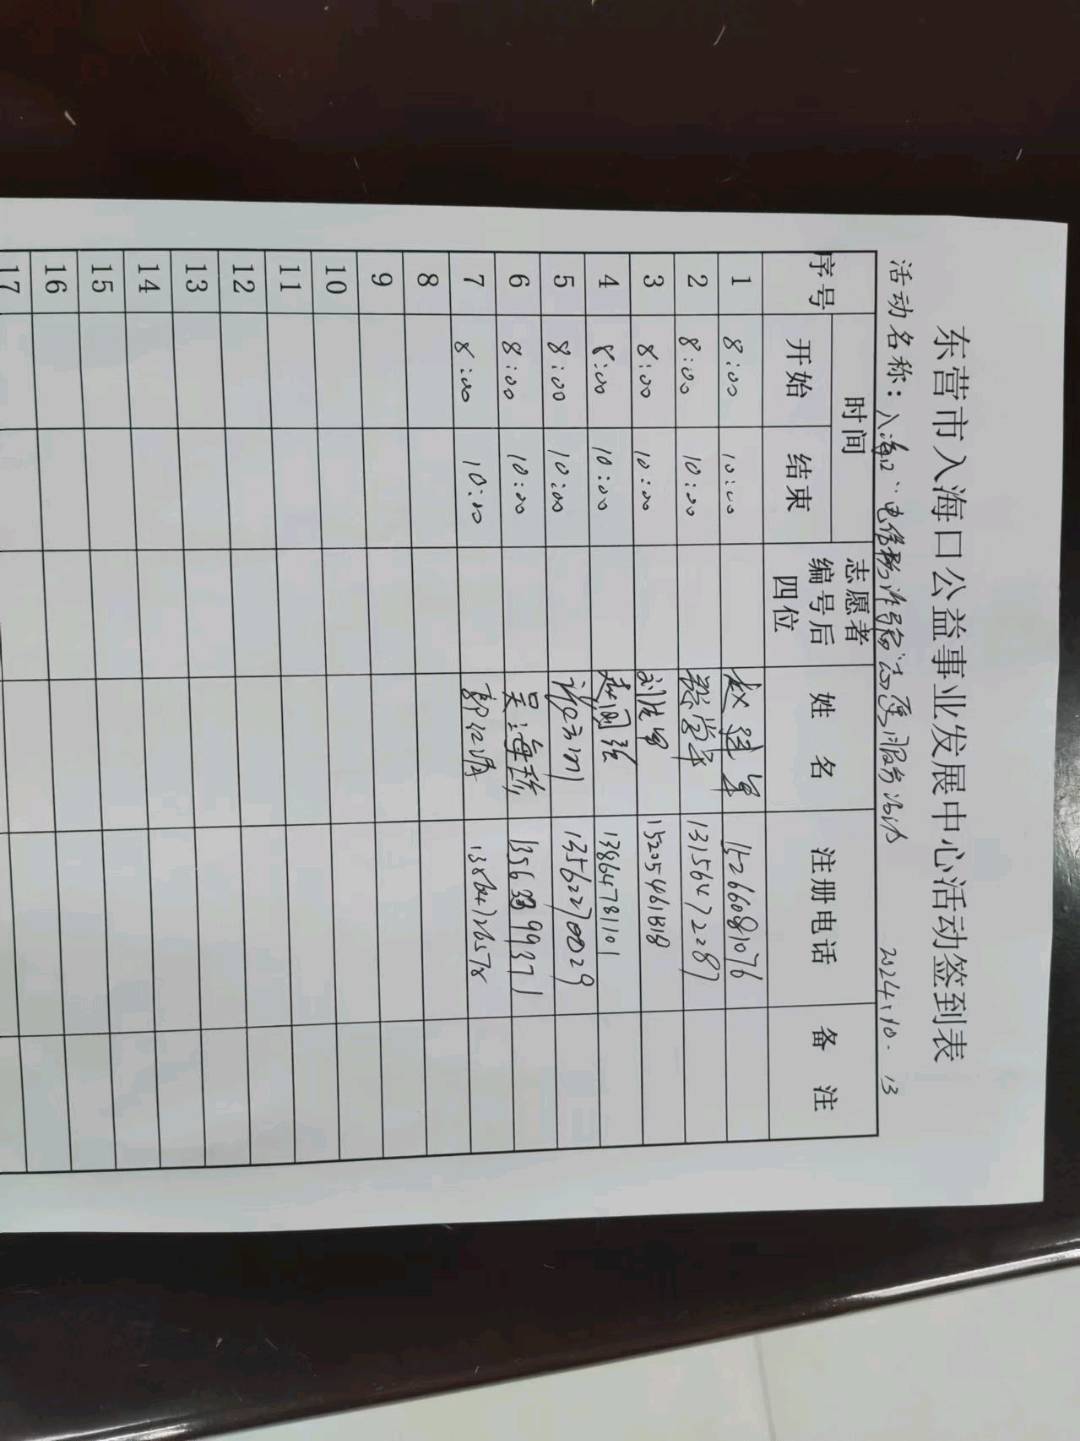 东营市入海口公益事业发展中心活动签到表
活动名称：入海口"电信 服务活动 2024.10.13
序号 时间 志愿者编号后四位 姓名 注册电话 备注
开始 结束
1 8:00 10:00 赵 军 15266081076
2 8:00 10:00 13156472287
3 8:00 10:00 15205461818
4 8:00 10:00 赵国强 13864781101
5 8:00 10:00 13562270029
6 8:00 10:00 吴海 9371
7 8:00 10:00 郭
8
9
10
11
12
13
14
15
16
17